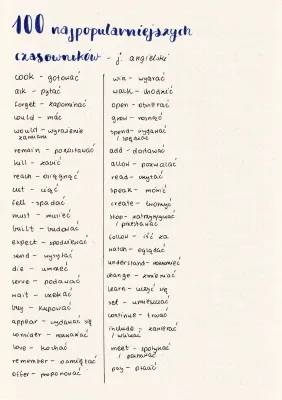 100 najpopularniejszych
czasowników - j. angielski
cook - gotować
ask - pytać
forget - zapominać
could - móc
would - wyrażenie
zamiaru
remain - pozostawać
kill - zabić
reach - osiągnąć
cut - ciąć
fell - spadać
must - musieć
built - budować
expect - spodziewać
send - wysyłać
die - umrzeć
serve - podawać
wait - czekać
buy - kupować
appear - wydawać się
consider - rozważać
love - kochać
remember - pamiętać
offer - proponować
win - wygrać
walk - chodzić
open - otwierać
grow - rosnąć
spend - wydawać
/ spędzać
add - dodawać
allow - pozwalać
read - czytać
speak - mówić
create - tworzyć
stop - zatrzymywać
/ przestawać
follow - iść za
watch - oglądać
understand - rozumieć
change - zmieniać
learn - uczyć się
set - umieszczać
continue - trwać
include - zawierać
/ wliczać
meet - spotykać
/ poznawać
pay - płacić